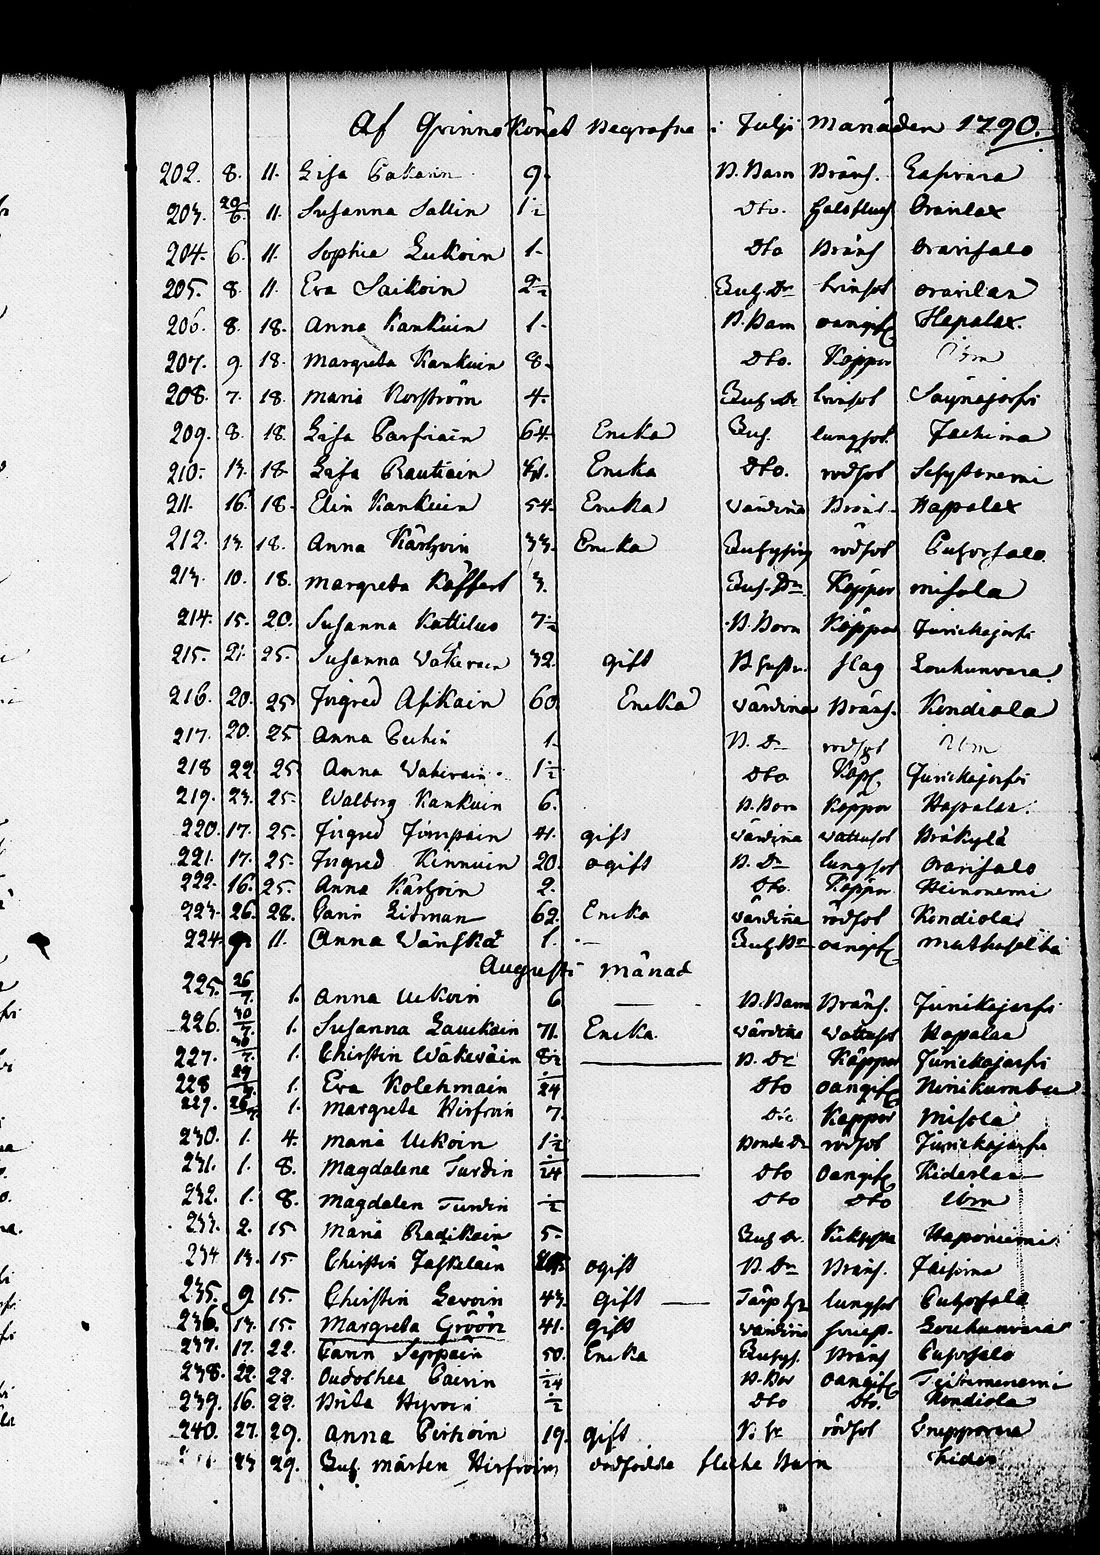 Af Qvinno Könet Begrafne i Julji Månaden 1790.
202. 8. 11. Lisa Pakarin 9. B. Barn Bränf.
203. 29/6 11. Susanna Sallin 1½ Dto. Halsfluß Oravilax
204. 6. 11. Sophia Lukoin 1. Dto Bränf Oravisalo
205. 8. 11. Eva Saikoin 2½ Inh. Dr brinsot oravilax
206. 8. 18. Anna Kankuin 1. B. Barn oangif Hapalax.
207. 9. 18. Margreta Kankuin 8. Dto. Koppor Ibm
208. 7. 18. Maria Norström 4. Inh. Dr brinsot Säynäjerfvi
209. 8. 18. Lisa Parfiain 64. Encka Inh. lungsot
210. 13. 18. Lisa Rautiain Encka Dto. rödsot
211. 16. 18. Elin Kankuin 54. Encka värdina Bränf. Hapalax
212. 13. 18. Anna Kärhoin 33. Encka rödsot Puhossalo
213. 10. 18. Margreta Koffert 3. Inh. Dr Koppor misola
214. 15. 20. Susanna Kattilus 7½ B. Barn Koppor Junickajerfvi
215. 21. 25. Susanna Wäkeväin 32. gift slag Louhunvara.
216. 20. 25. Jngred Asikain 60. Encka värdina Bränf. Kondiola
217. 20. 25. Anna 1. B. Dr rödsot Ibm
218 22. 25. Anna Wäkeväin. 1½ Dto Kopp. Junickajerfvi
219. 23. 25. Walborg Kankuin 6. B. Barn Koppor Hapalax.
220. 17. 25. Jngred Jümpäin 41. gift värdina Wattusot Bräkylä
221. 17. 25. Jngred Kinnuin 20. ogift B. Dr lungsot Oravisalo
222. 16. 25. Anna Kärhoin 2. Dto. Koppor Heinonemi
223. 26. 28. Carin Litman 62. Encka Värdina rödsot Kondiola
224. 9. 11. Anna Wänskä 1. Inh. Dr oangif
Augusti Månad
225. 26/7. 1. Anna Uckoin 6 B. Barn Bränf. Junikajerfvi
226. 30/7. 1. Susanna Lauckain 71. Encka. värdina Wattusot Hapalax
227. 30/7. 1. Christin Wäkeväin 8½ B. Dr Koppor Junickajerfvi
228 29/7. 1. Eva Kolehmain 1/24 Dto Oangif Nenikumbu
229. 26/7 1. Margreta Hirfvoin 7. Dto Koppor Misola
230. 1. 4. Maria Uckoin 1½ Bonde Dr rodsot Junickajerfvi
231. 1. 8. Magdalena Turdin 1/24 Dto Oangif Kiderlax
232. 1. 8. Magdalen Turdin ½ Dto Dto Ibm
233. 2. 15 Maria Radikain 5. Inh Dr. Kikhosta Haponiemi
234 13. 15. Christin Jaskelain ogift B. Dr Bränf.
235. 9. 15. Christin Levoin 43. Gift lungsot Puhossalo
236. 13. 15. Margreta Gröön 41. gift värdina Louhunvara
237. 17. 22. Carin Seppäin 50. Encka Bränf Puhossalo
238. 22. 22. Oudothea Pairin 1/24 B. Bar oangif
239. 16. 22. Brita Hyvoin ½ Dto Dto. Kondiola
240. 27. 29. Anna Pirhoin 19. gift rödsot
23 29. Inh. Mårten Hirfvoins dödfödde flicke Barn